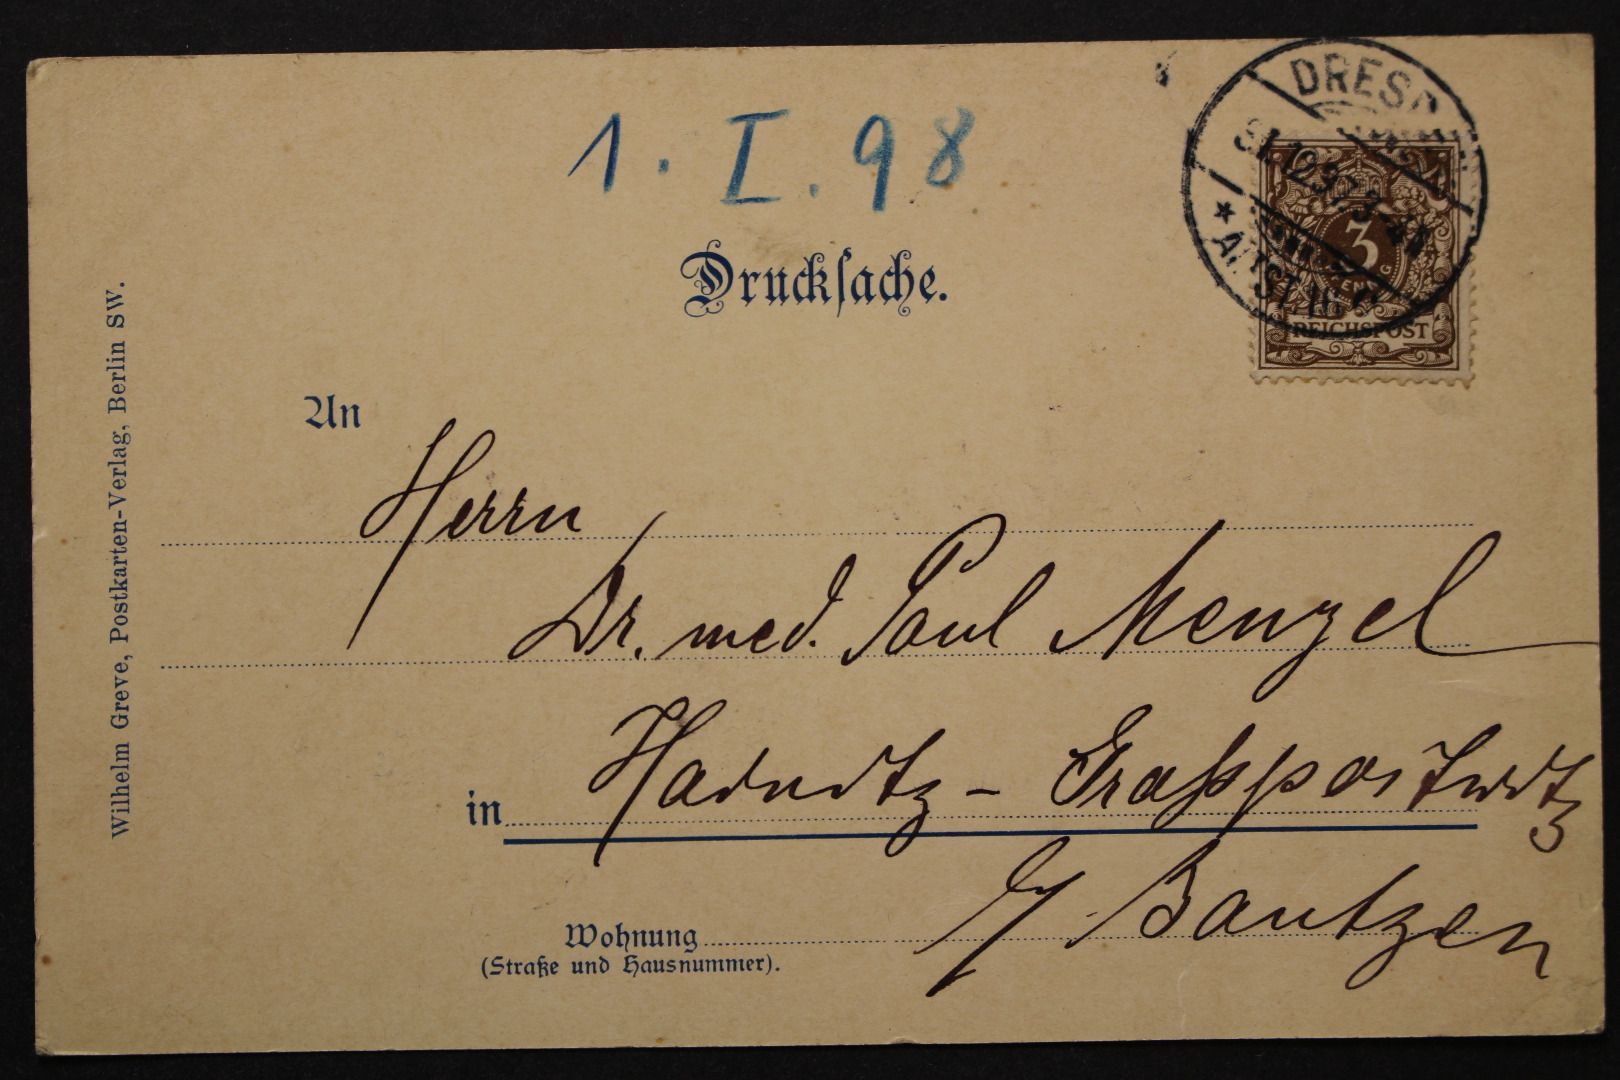 1. I. 98
DRESD
31.12.97. 3-4N
* ALTST. 16 c.
3
REICHSPOST
Drucksache.
An
Herrn
Dr. med. Paul Menzel
in Hainitz - Großpostwitz
b/ Bautzen
Wohnung
(Straße und Hausnummer).
Wilhelm Greve, Postkarten-Verlag, Berlin SW.